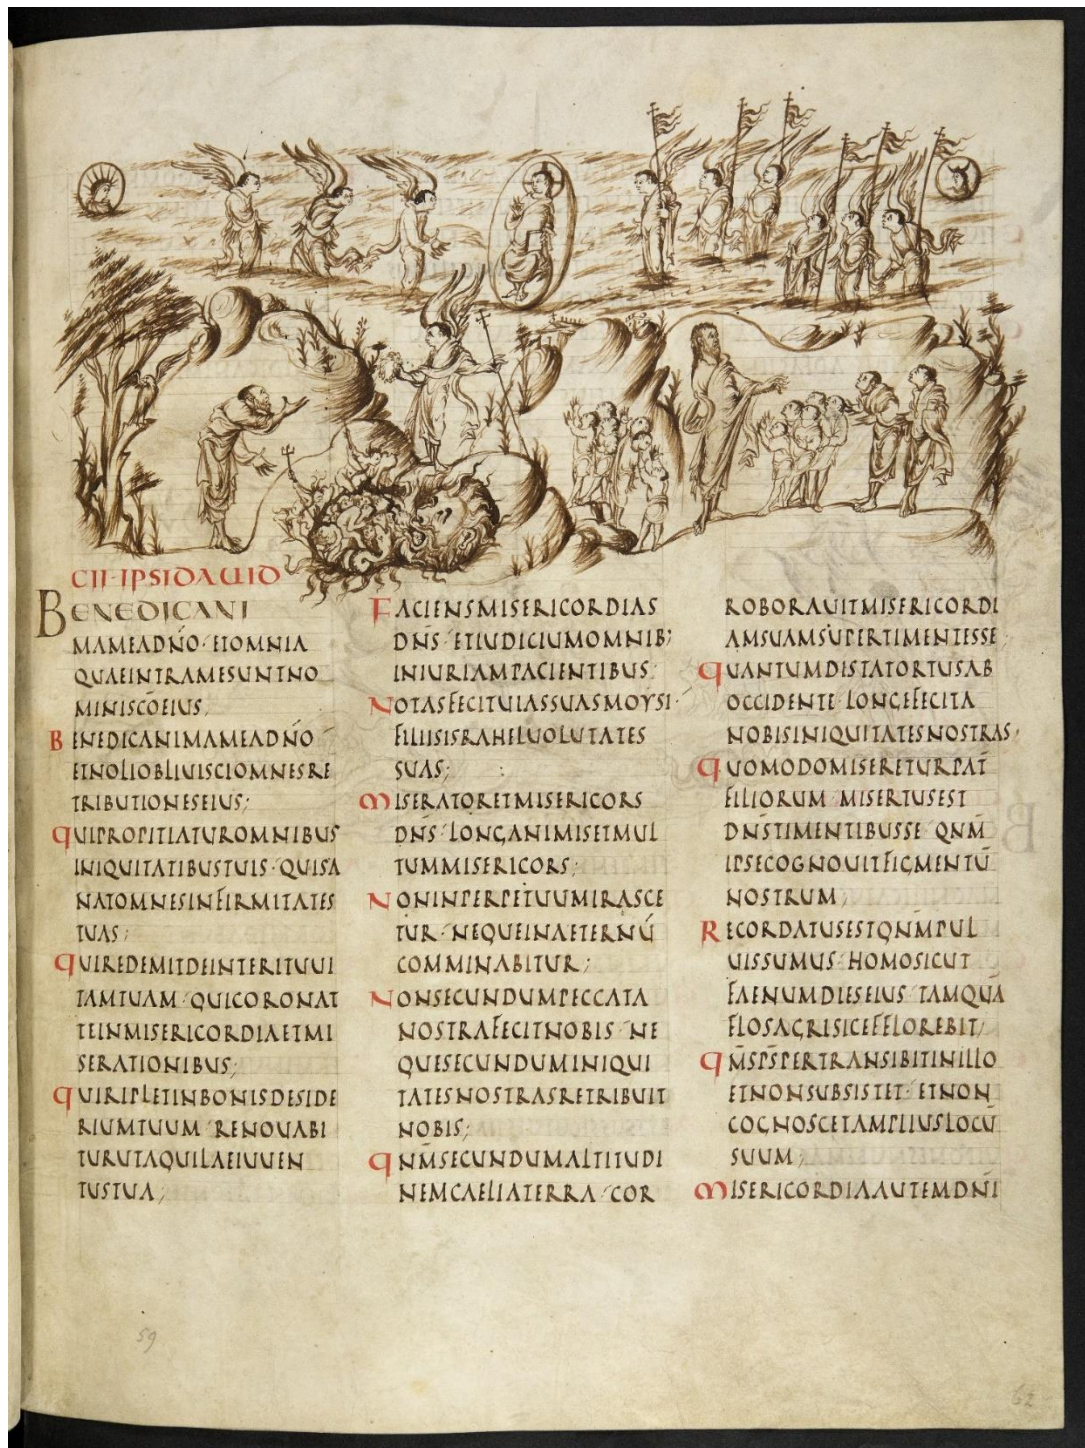 CII·IPSI DAUID
BENEDIC ANI
MA MEA DN̄O· ET OMNIA
QUAE INTRA ME SUNT NO
MINI SC̄O EIUS
BENEDIC ANIMA MEA DN̄O
ET NOLI OBLIUISCI OMNES RE
TRIBUTIONES EIUS;
QUI PROPITIATUR OMNIBUS
INIQUITATIBUS TUIS· QUI SA
NAT OMNES INFIRMITATES
TUAS;
QUI REDEMIT DE INTERITU UI
TAM TUAM· QUI CORONAT
TE IN MISERICORDIA ET MI
SERATIONIBUS;
QUI RIPLET IN BONIS DESIDE
RIUM TUUM· RENOUABI
TUR UT AQUILAE IUUEN
TUS TUA;
FACIENS MISERICORDIAS
DN̄S· ET IUDICIUM OMNIB;
INIURIAM PACIENTIBUS·
NOTAS FECIT UIAS SUAS MOYSI·
FILIIS ISRAHEL UOLUTATES
SUAS;
MISERATOR ET MISERICORS
DN̄S· LONGANIMIS ET MUL
TUM MISERICORS;
NON IN PERPETUUM IRASCE
TUR· NEQUE IN AETERNŪ
COMMINABITUR;
NON SECUNDUM PECCATA
NOSTRA FECIT NOBIS· NE
QUE SECUNDUM INIQUI
TATES NOSTRAS RETRIBUIT
NOBIS;
QNM̄ SECUNDUM ALTITUDI
NEM CAELI A TERRA· COR
ROBORAUIT MISERICORDI
AM SUAM SUPER TIMENTES SE
QUANTUM DISTAT ORTUS AB
OCCIDENTE· LONGE FECIT A
NOBIS INIQUITATES NOSTRAS;
QUOMODO MISERETUR PAT̄
FILIORUM MISERTUS EST
DN̄S TIMENTIBUS SE· QNM̄
IPSE COGNOUIT FIGMENTŪ
NOSTRUM;
RECORDATUS EST QNM̄ PUL
UIS SUMUS· HOMO SICUT
FAENUM DIES EIUS· TAMQUĀ
FLOS AGRI SIC EFFLOREBIT;
QM̄ SP̄S PERTRANSIBIT IN ILLO
ET NON SUBSISTET· ET NON
COGNOSCET AMPLIUS LOCŪ
SUUM;
MISERICORDIA AUTEM DN̄I
59
62